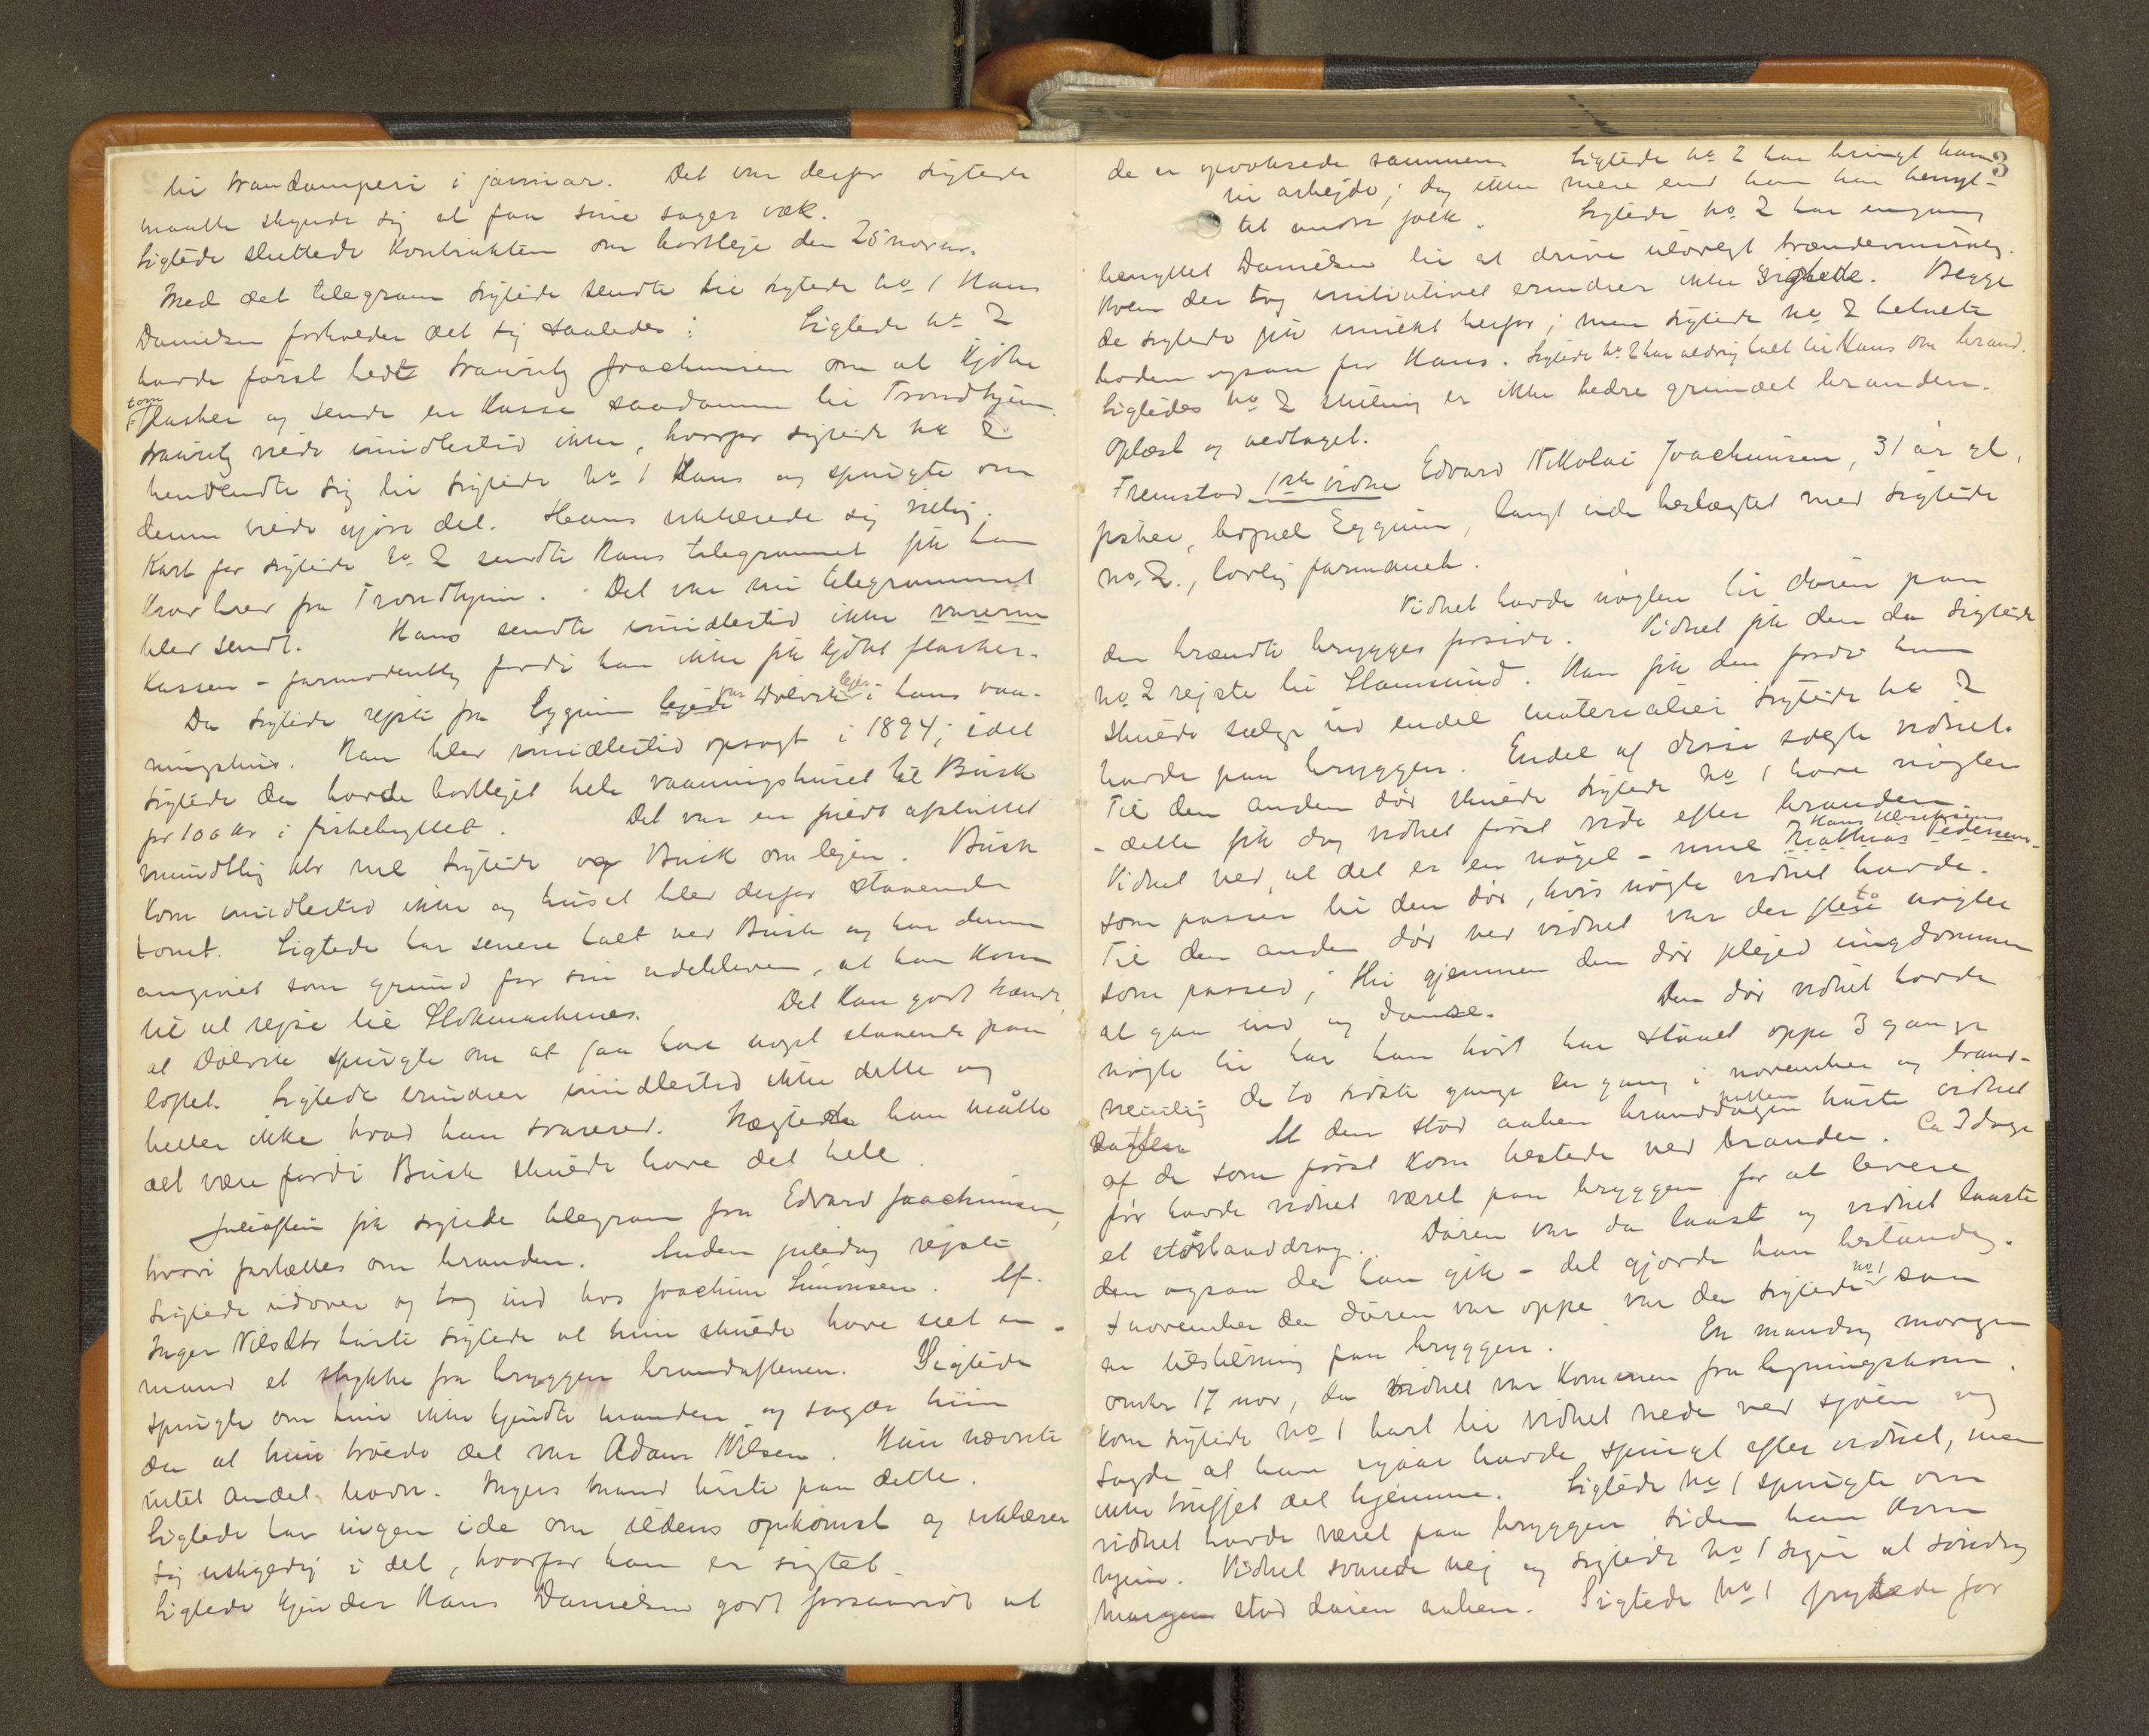 til trandamperi i januar. Det var derfor sigtede
maatte skynde sig at faa sine sager væk.
Sigtede sluttede kontrakten om bortleje den 25 novbr.
Med det telegram sigtede sendte til sigtede No 1 Hans
Danielsen forholder det sig saaledes: Sigtede No 2
havde først bedt Joachimsen om at kjøbe
tom
flasker og sende en kasse saadanne til Trondhjem.
vilde imidlertid ikke, hvorfor sigtede No 2
henvendte sig til sigtede No 1 Hans og spurgte om
denne vilde gjøre det. Hans erklærede sig villig.
Kort før sigtede No 2 sendte Hans telegrammet fik han
krav brev fra Trondhjem. Det var nu telegrammet
blev sendt. Hans sendte imidlertid ikke varerne
kassen - formodentlig fordi han ikke fik kjøbt flasker.
Da sigtede rejste fra Eggum lejede i hans vaa-
ningshus. Han blev imidlertid opsagt i 1894; idet
sigtede da havde bortlejet hele vaaningshuset til Busk
for 100 kr i fiskebyttet. Det var en fuldt afsluttet
mundtlig mel sigtede og Busk om lejen. Busk
kom imidlertid ikke og huset blev derfor staaende
tomt. Sigtede har senere talt med Busk og har denne
angivet som grund for sin udebliven, at han kom
til at rejse til Stokmarknes. Det kan godt hænde,
at spurgte om at faa have noget staaende paa
loftet. Sigtede erindrer imidlertid ikke dette og
heller ikke hvad han svarede. Nægtede han maatte
det være fordi Busk skulde have det hele.
Juleaften fik sigtede telegram fra Edvard Joachimsen,
hvori fortælles om branden. Anden juledag rejste
sigtede udover og tog ind hos Joachim Simonsen. Af
Inger Nilsdtr hørte sigtede at hun skulde have seet en
mand et stykke fra bryggen brandaftenen. Sigtede
spurgte om hun ikke kjendte manden og sagde hun
da at hun troede det var Adam Nilsen. Hun nævnte
intet andet navn. Ingers mand hørte paa dette.
Sigtede har ingen ide om ildens opkomst og erklærer
sig uskyldig i det, hvorfor han er sigtet.
Sigtede kjender Hans Danielsen godt forsaavidt at
3
de er opvoksede sammen. Sigtede No 2 har bragt ham
til arbejde; dog ikke mere end han har benyt-
tet andre folk. Sigtede No 2 har engang
benyttet Danielsen til at drive ulovligt brændevinssalg.
Hvem der tog initiativet erindrer ikke sigtede. Begge
de sigtede fik mulkt herfor; men sigtede No 2 betalte
boden ogsaa for Hans. Sigtede No 2 har aldrig talt til Hans om brand.
Sigtedes No 2 stilling er ikke bedre grundet branden.
Oplæst og vedtaget.
Fremstod 1ste vidne Edvard Nikolai Joachimsen, 31 år gl,
fisker, bopæl Eggum, langt ude beslægtet med sigtede
No. 2., lovlig formanet.
Vidnet havde nøglen til døren paa
den brændte brygges forside. Vidnet fik den da sigtede
No 2 rejste til Hamsund. Han fik den fordi han
skulde sælge ud endel materialier sigtede No 2
havde paa bryggen. Endel af disse solgte vidnet.
Til den anden dør skulde sigtede No 1 have nøglen
- dette fik dog vidnet først vide efter branden.
Hans
Vidnet ved, at det er en nøgel - Mathias Pedersens -
som passer til den dør, hvis nøgle vidnet havde.
to
Til den anden dør ved vidnet var der flere nøgler
som passed; thi gjennem den dør plejed ungdommen
at gaa ind og danse. Den dør vidnet havde
nøgle til har han hørt har staaet oppe 3 gange
nemlig de to sidste gange en gang i november og brand-
natten
dagen At den stod aaben branddagen hørte vidnet
af de som først kom tilstede ved branden. Ca 3 dage
før havde vidnet været paa bryggen for at levere
et Døren var da laast og vidnet laaste
den ogsaa da han gik - det gjorde han bestandig.
No 1
I november da døren var oppe var det sigtede som
en paa bryggen. En mandag morgen
omkr 17 nov, da vidnet var kommen fra ligningskom.
kom sigtede No 1 bort til vidnet nede ved sjøen og
sagde at han igaar havde spurgt efter vidnet, men
ikke truffet det hjemme. Sigtede No 1 spurgte om
vidnet havde været paa bryggen siden han kom
hjem. Vidnet svarede nej og sigtede No 1 siger at søndag
morgen stod døren aaben. Sigtede No 1 frygtede for